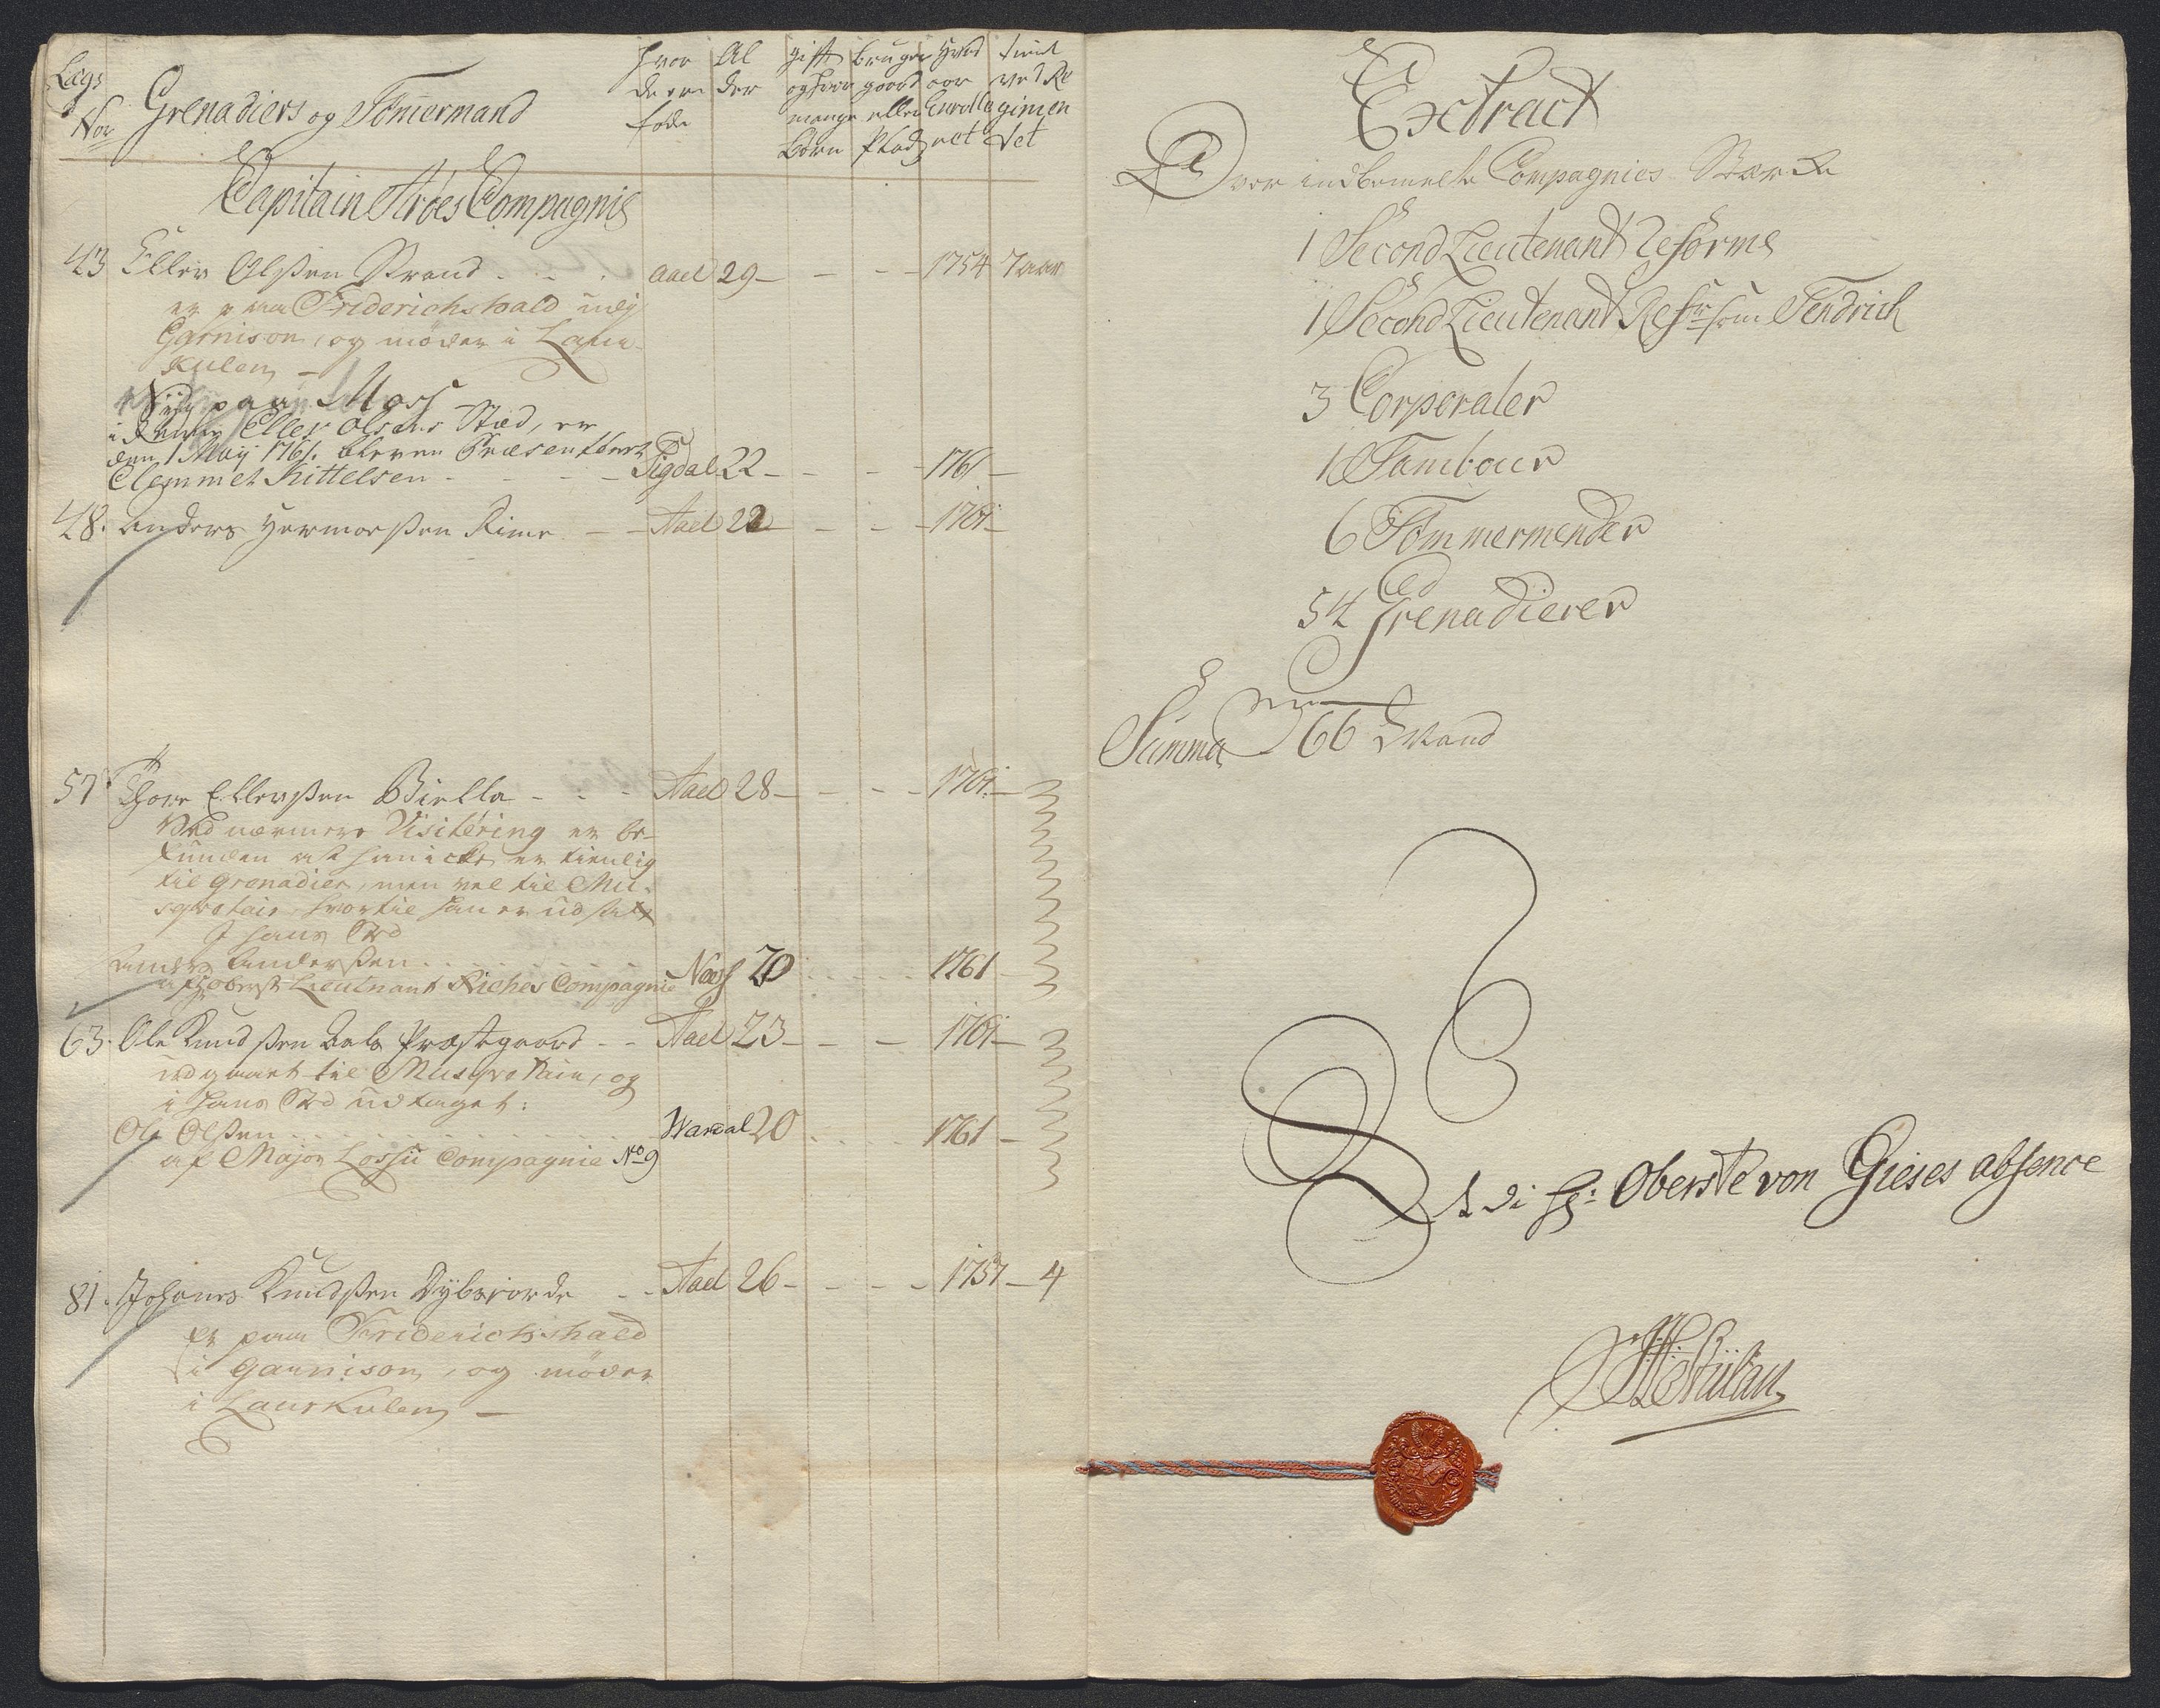 Lægs No
Grenadiers og Tömmermænd
Hvor de ere føde
Alder
gift og hvor mange Børn
bruger gaard eller Plads
Hvad aar Enrolleret
tient ved Regimentet
Capitain Ströes Compagnie
43 Eller Olsßen Strand - - - Aael 29 - - - - 1754 7 aar
er paa Friderichshald udj
Garnison, og möder i Laur-
kulen -
paa Moss
i Eller Olsens Sted, er
den 1 Maij 1761. bleven Præsenteret
Clemmet Kittelsen - - - Sigdal 22 - - - 1761 -
48. Anders Hermorsßen Rime - - Aael 22 - - - 1761 -
57 Thore Ellevsßen Biella - - - Aael 28 - - - 1761 -
Ved nærmere Visitéring er be-
funden att han icke er tienlig
til grenadier, men vel til Mu-
sqvetair hvortil han er udsatt
I hans Sted
Anders Andersßen . . . . . Næss 20 . . . . 1761 -
af Oberst Lieutnant Riches Compagnie
63. Ole Knudsßen Bals Præstgaard - - Aael 23 - - - 1761 -
udgaaet til Musqvetair, og
i hans Sted udtaget:
Ole Olsßen . . . . . Wardal 20 . . . . 1761 -
af Major Lossii Compagnie No 9
81. Johannes Knudsßen Dybsiorde - - Aael 26 - - - - 1757 - 4
Er paa Friderichshald
i Garnison, og möder
i Laurkulen -
Extract
Over indbemelte Compagnies Stærke
1 Second Lieutenant Reforme
1 Second Lieutenant Refr som Fendrich
3 Corporaler
1 Tambour
6 Tömmermender
54 Grenadierer
Summa 66 Mand
I Hr: Oberste von Gieses absence